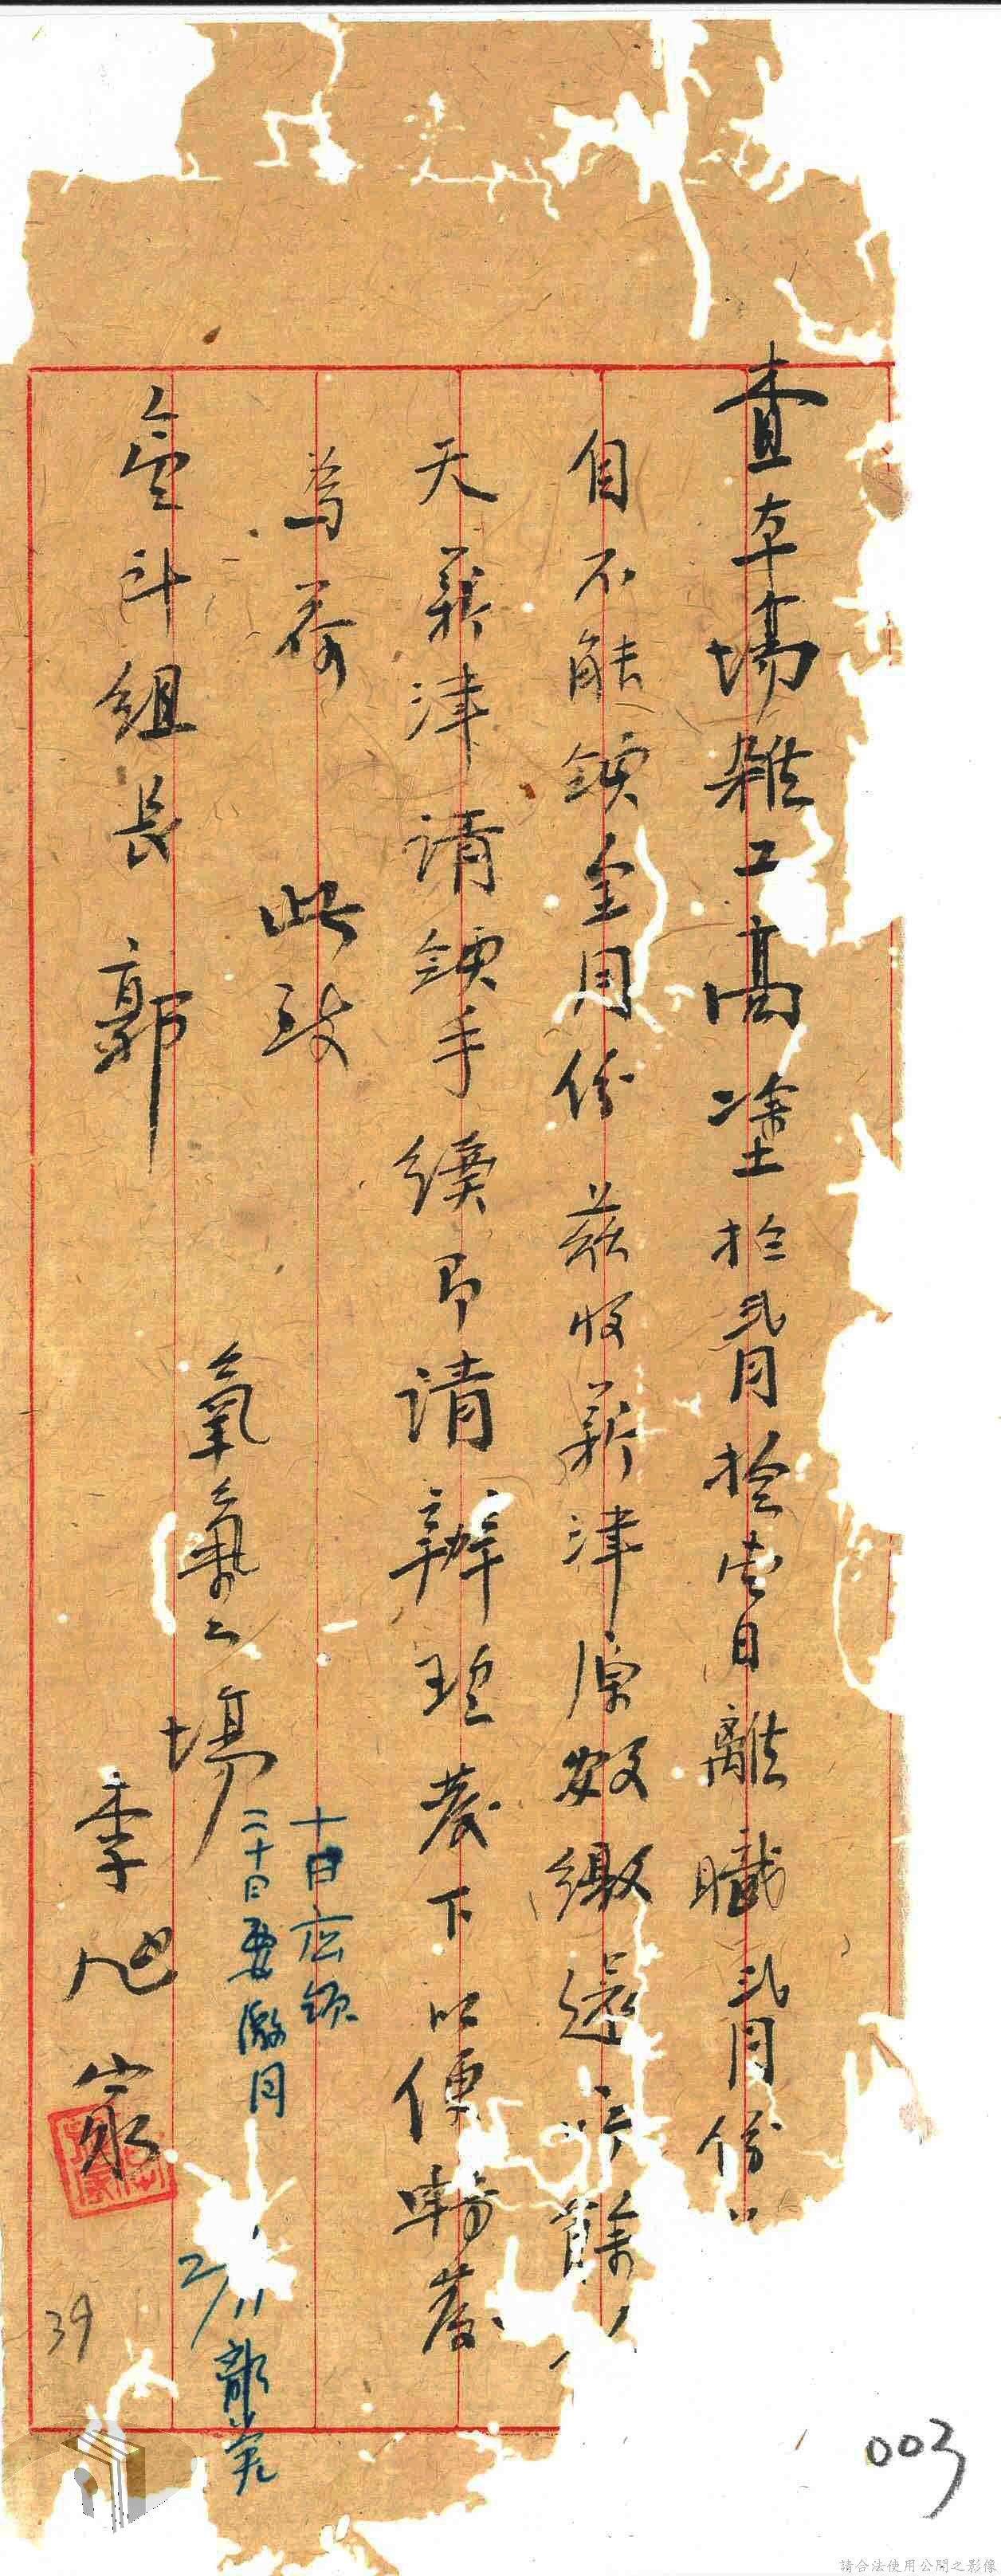 查本場雜工高塗拾貳月拾壹日離職貳月份
自不能領全月份茲收薪津原數繳還所餘
天薪津請領手續即請辦理發下以便轉發
為荷
此致
會計組長郭
氧氣工場
李
十日應領
二十日要繳回
2/11
39
003
請合法使用公開之影像